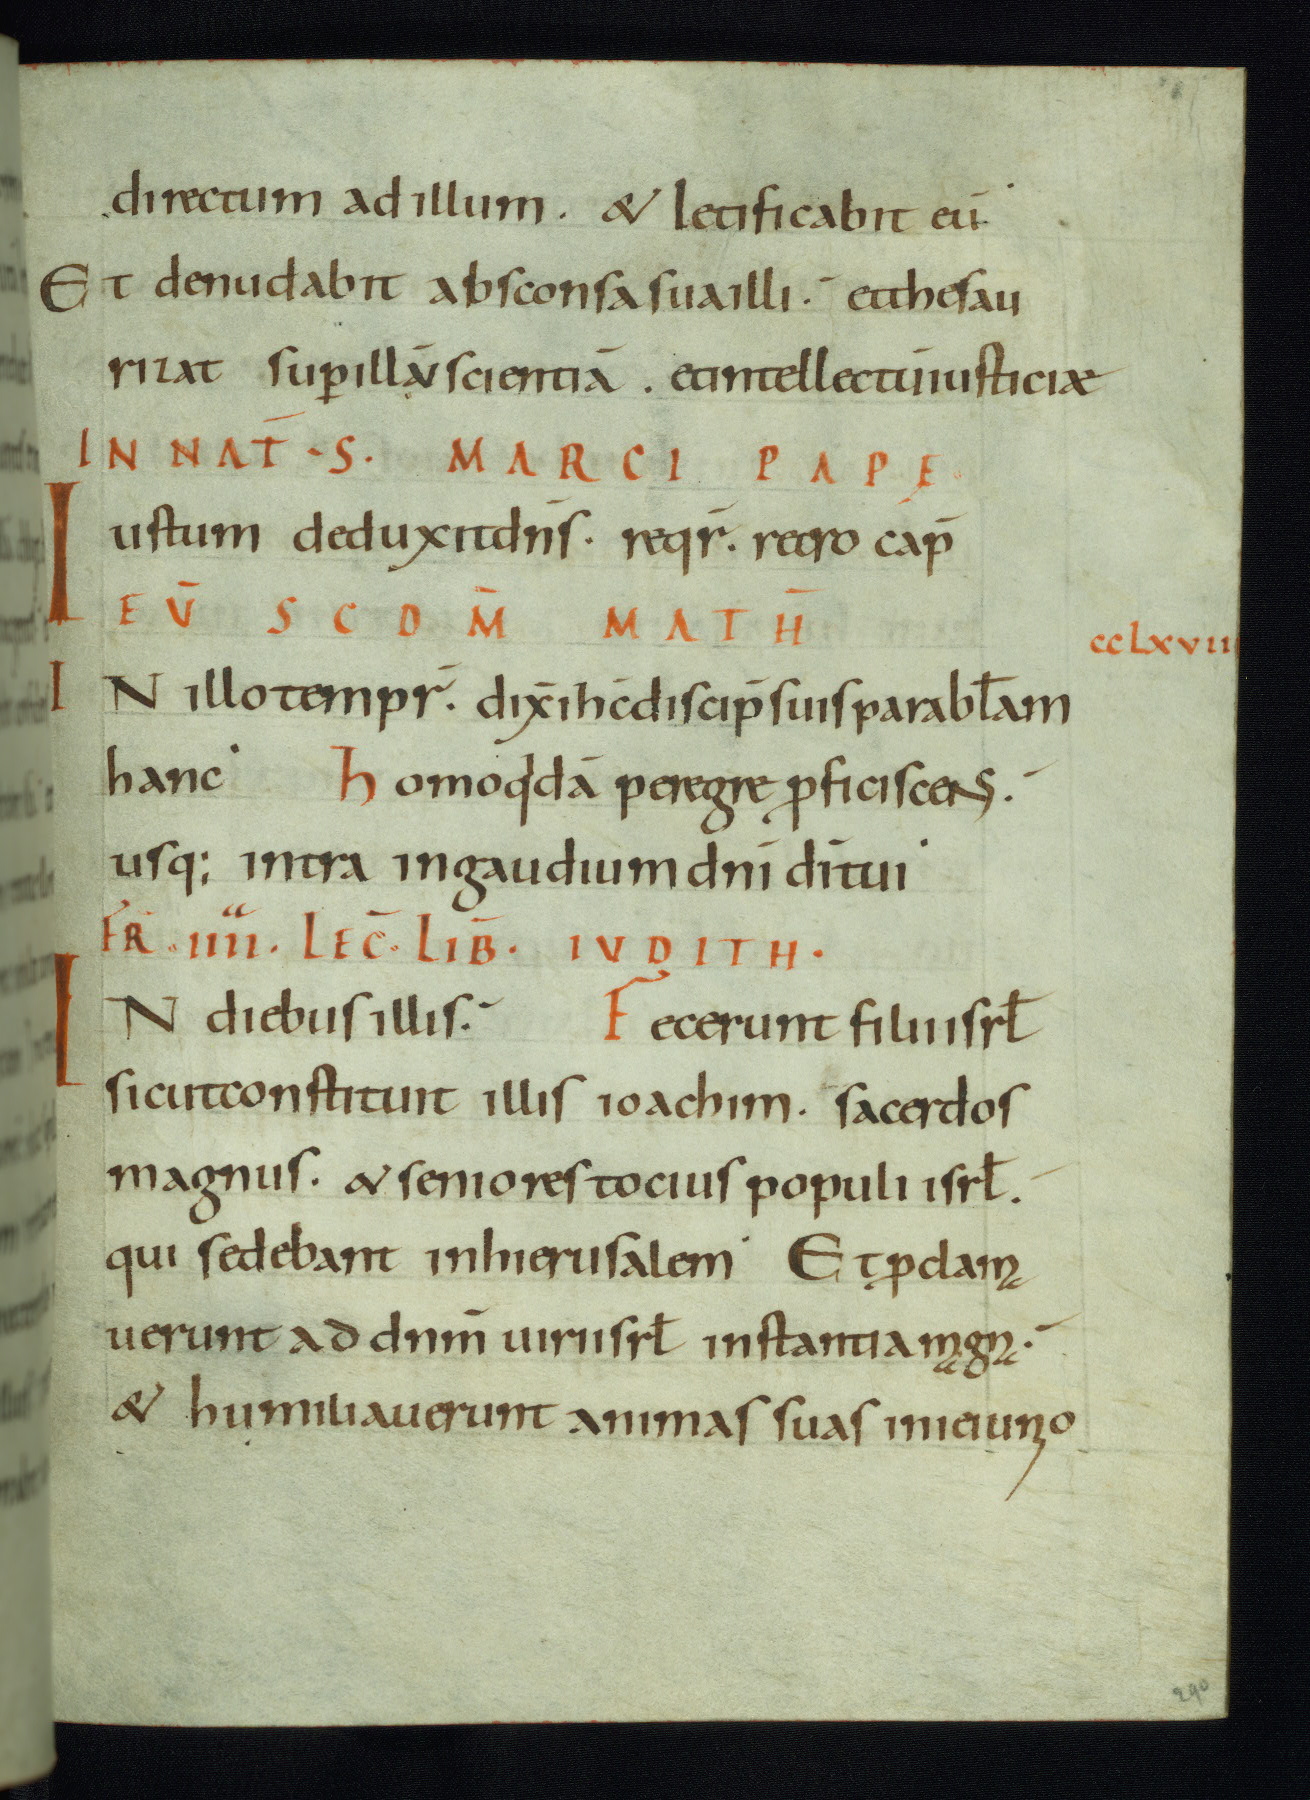 directum ad illum. & letificabit eū
Et denudabit absconsa sua illi. et thesau
rizat super illū scientiā. et intellectū iusticiæ
IN NAT̄. S. MARCI PAPE
Iustum deduxit dn̄s. reqr̄. retro cap̄
EV̄ SCDM̄ MATH̄
CCLXVII
IN illo tempr̄. dix̄ ih̄c discip̄ suis parabl̄am
hanc homo qdā peregre ꝓficiscens.
usq; intra in gaudium dn̄i dī tui
FR̄. IIII. LEC̄. LIB̄. IVDITH.
IN diebus illis. Fecerunt filii isrł
sicut constituit illis ioachim. sacerdos
magnus. & seniores tocius populi isrł.
qui sedebant in hierusalem Et ꝓclama
uerunt ad dnm̄ uiri isrł instantia magna.
& humiliauerunt animas suas in ieiunio
290